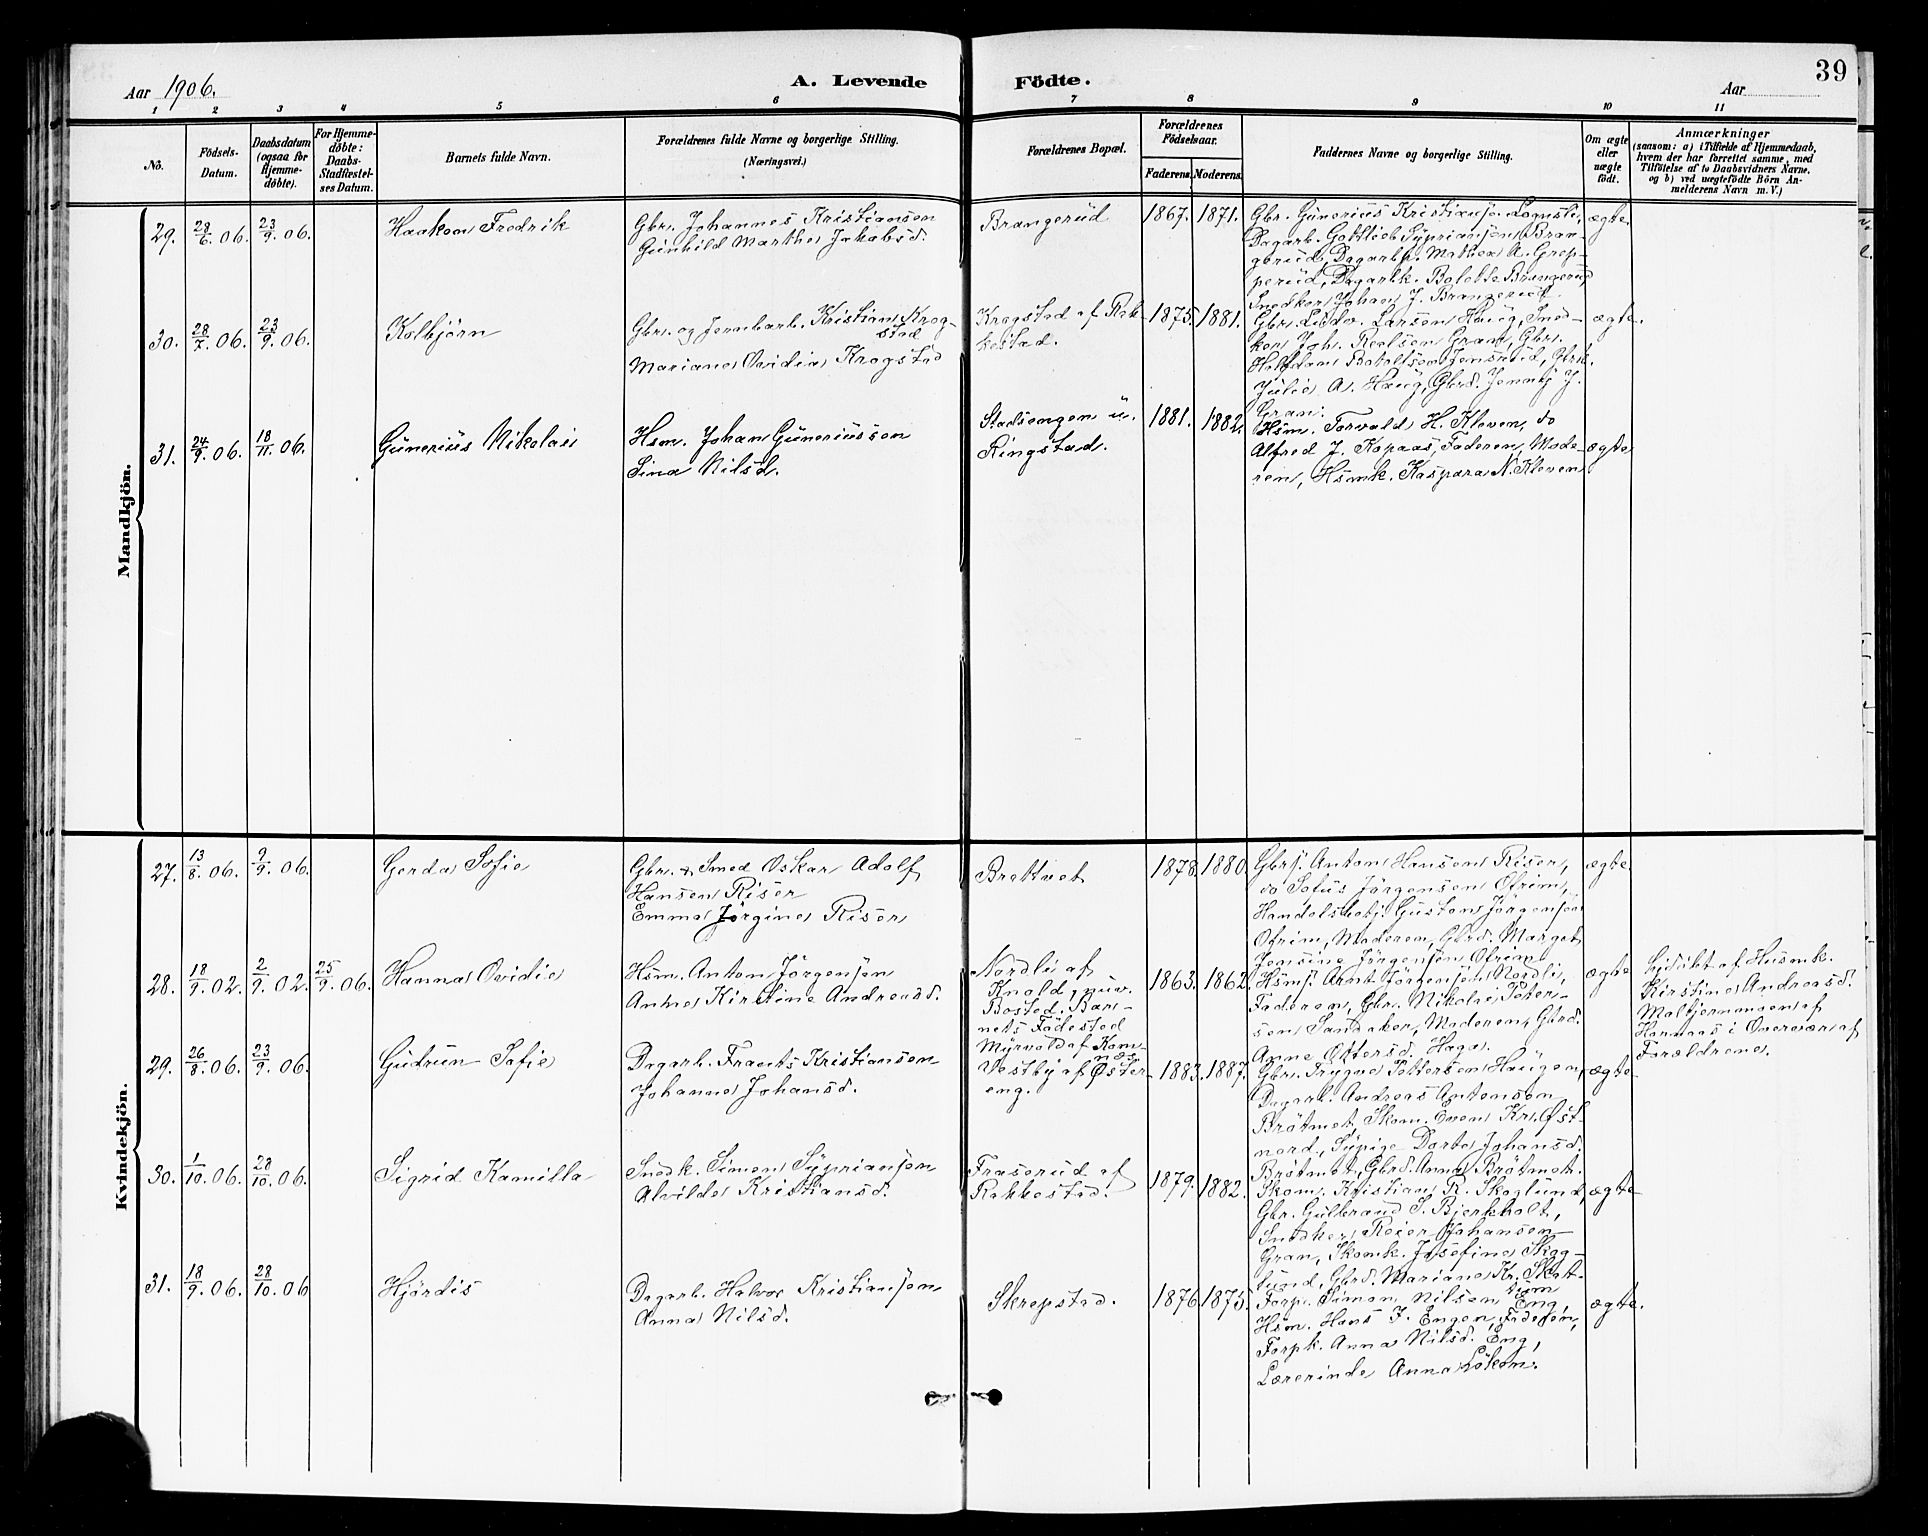 39
Aar 1906.
A. Levende
Födte.
Aar
1 2 3 4 5 6 7 8 9 10 11
No.
Födsels-Datum.
Daabsdatum (ogsaa for Hjemme-döbte).
For Hjemme-döbte: Daabs-Stadfæstel-ses Datum.
Barnets fulde Navn.
Forældrenes fulde Navne og borgerlige Stilling.
(Næringsvei.)
Forældrenes Bopæl.
Forældrenes Födselsaar.
Faderens. Moderens.
Faddernes Navne og borgerlige Stilling.
Om ægte eller uægte födt.
Anmærkninger
(saasom: a) i Tilfælde af Hjemmedaab,
hvem der har forrettet samme, med
Tilföielse af to Daabsvidners Navne,
og b) ved uægtefödte Börn An-
melderens Navn m. V.)
Mandkjön.
29. 28/6 06. 23/9 06.
Haakon Fredrik
Gbr. Johannes Kristiansen
Günhild Marthe Jakobsd.
Brangerüd
1867. 1871.
Gbr. Günerius Kristiansen Lömsli,
Dagarb. Gottlieb Syprianjen Bran-
gerüd, Dagarbk. Mathea A. Grep-
perüd, Dagarbk. Bolette Brangerüd
Snedker Johan J. Brangerüd.
ægte
30. 28/7 06. 23/9 06.
Kolbjörn
Gbr. og Jernbarb. Kristian Krog-
stad
Mariane Ovidia Krogstad
Krogstad af Rak-
kestad.
1875. 1881.
Gbr. Lüdv. Larsen Haug, Sned-
ker Joh. Reelsen Gran, Gbr.
Halfdan Botolfsen Jensrüd, Gbrk.
Julie A. Haug, Gbrd. Jenny J.
Gran.
ægte.
31. 24/9 06. 18/11 06.
Günerius Nikolai
Hsm. Johan Güneriüssen
Lina Nilsd.
Stadsengen ü.
Ringstad.
1881. 1882.
Hsm. Torvald H. Kleven, do
Alfred J. Kopaas, Faderen, Mode-
ren, Hsmk. Kaspara N. Kleven
ægte
Kvindekjön.
27. 13/8 06. 9/9 06.
Gerda Sofie
Gbr. & Smed Oskar Adolf
Hansen Riser
Emma Jörgine Riser
Brattvet
1878. 1880.
Gbrs. Anton Hansen Riser,
do Sofus Jörgensen Ofrim,
Handelsbetj. Gustav Jörgensen
Ofrim, Moderen, Gbrd. Margit
Jensine Jörgensen Ofrim
ægte
28. 18/9 02. 2/9 02. 25/9 06.
Hanna Ovidie
Hsm. Anton Jörgensen
Anne Kirstine Andreasd.
Nordli af
Knold, nuv.
Bosted. Bar-
nets Födested
Myrvold af Kam-
næs
1863. 1862.
Hsms. Arnt Jörgensen Nordli,
Faderen, Gbr. Nikolai Peter-
sen Sandaker, Moderen, Gbrd.
Anne Ottersd. Haga.
ægte
Hjdöbt af Husmk.
Kirstine Andreasd.
Maltjernmoen af
Harnaas i Overvær af
Forældrene.
29. 26/8 06. 23/9 06.
Gudrun Sofie
Dagarb. Frants Kristiansen
Johanne Johansd.
Vestby af Öster-
eng.
1883. 1887.
Gbr. Trygve Pettersen Haügen,
Dagarb. Andreas Antonsen
Brötmet, Skom. Even Kr. Öst-
nord, Sypige Dorte Johansd.
Brötmet, Gbrd. Anna Brötmet.
ægte
30. 1/10 06. 28/10 06.
Sigrid Kamilla
Snedk. Simen Syprianjen
Alvilde Kristiansd.
Fraserud af
Rakkestad.
1879. 1882.
Skom. Kristian R. Skoglund,
Gbr. Gulbrand S. Bjerkholt,
Snedker Reier Johansen
Gran, Skomk. Josefine Skog-
lund, Gbrd. Mariane Kr. Skat-
vism
ægte
31. 18/9 06. 28/10 06
Hjördis
Dagarb. Halvor Kristiansen
Anna Nilsd.
Skrepstad.
1876. 1875.
Forp. Simen Nilsen Eng,
Hsm. Hans J. Engen, Faderen,
Forpk. Anna Nilsd. Eng,
Lærerinde Anna Löken.
ægte.